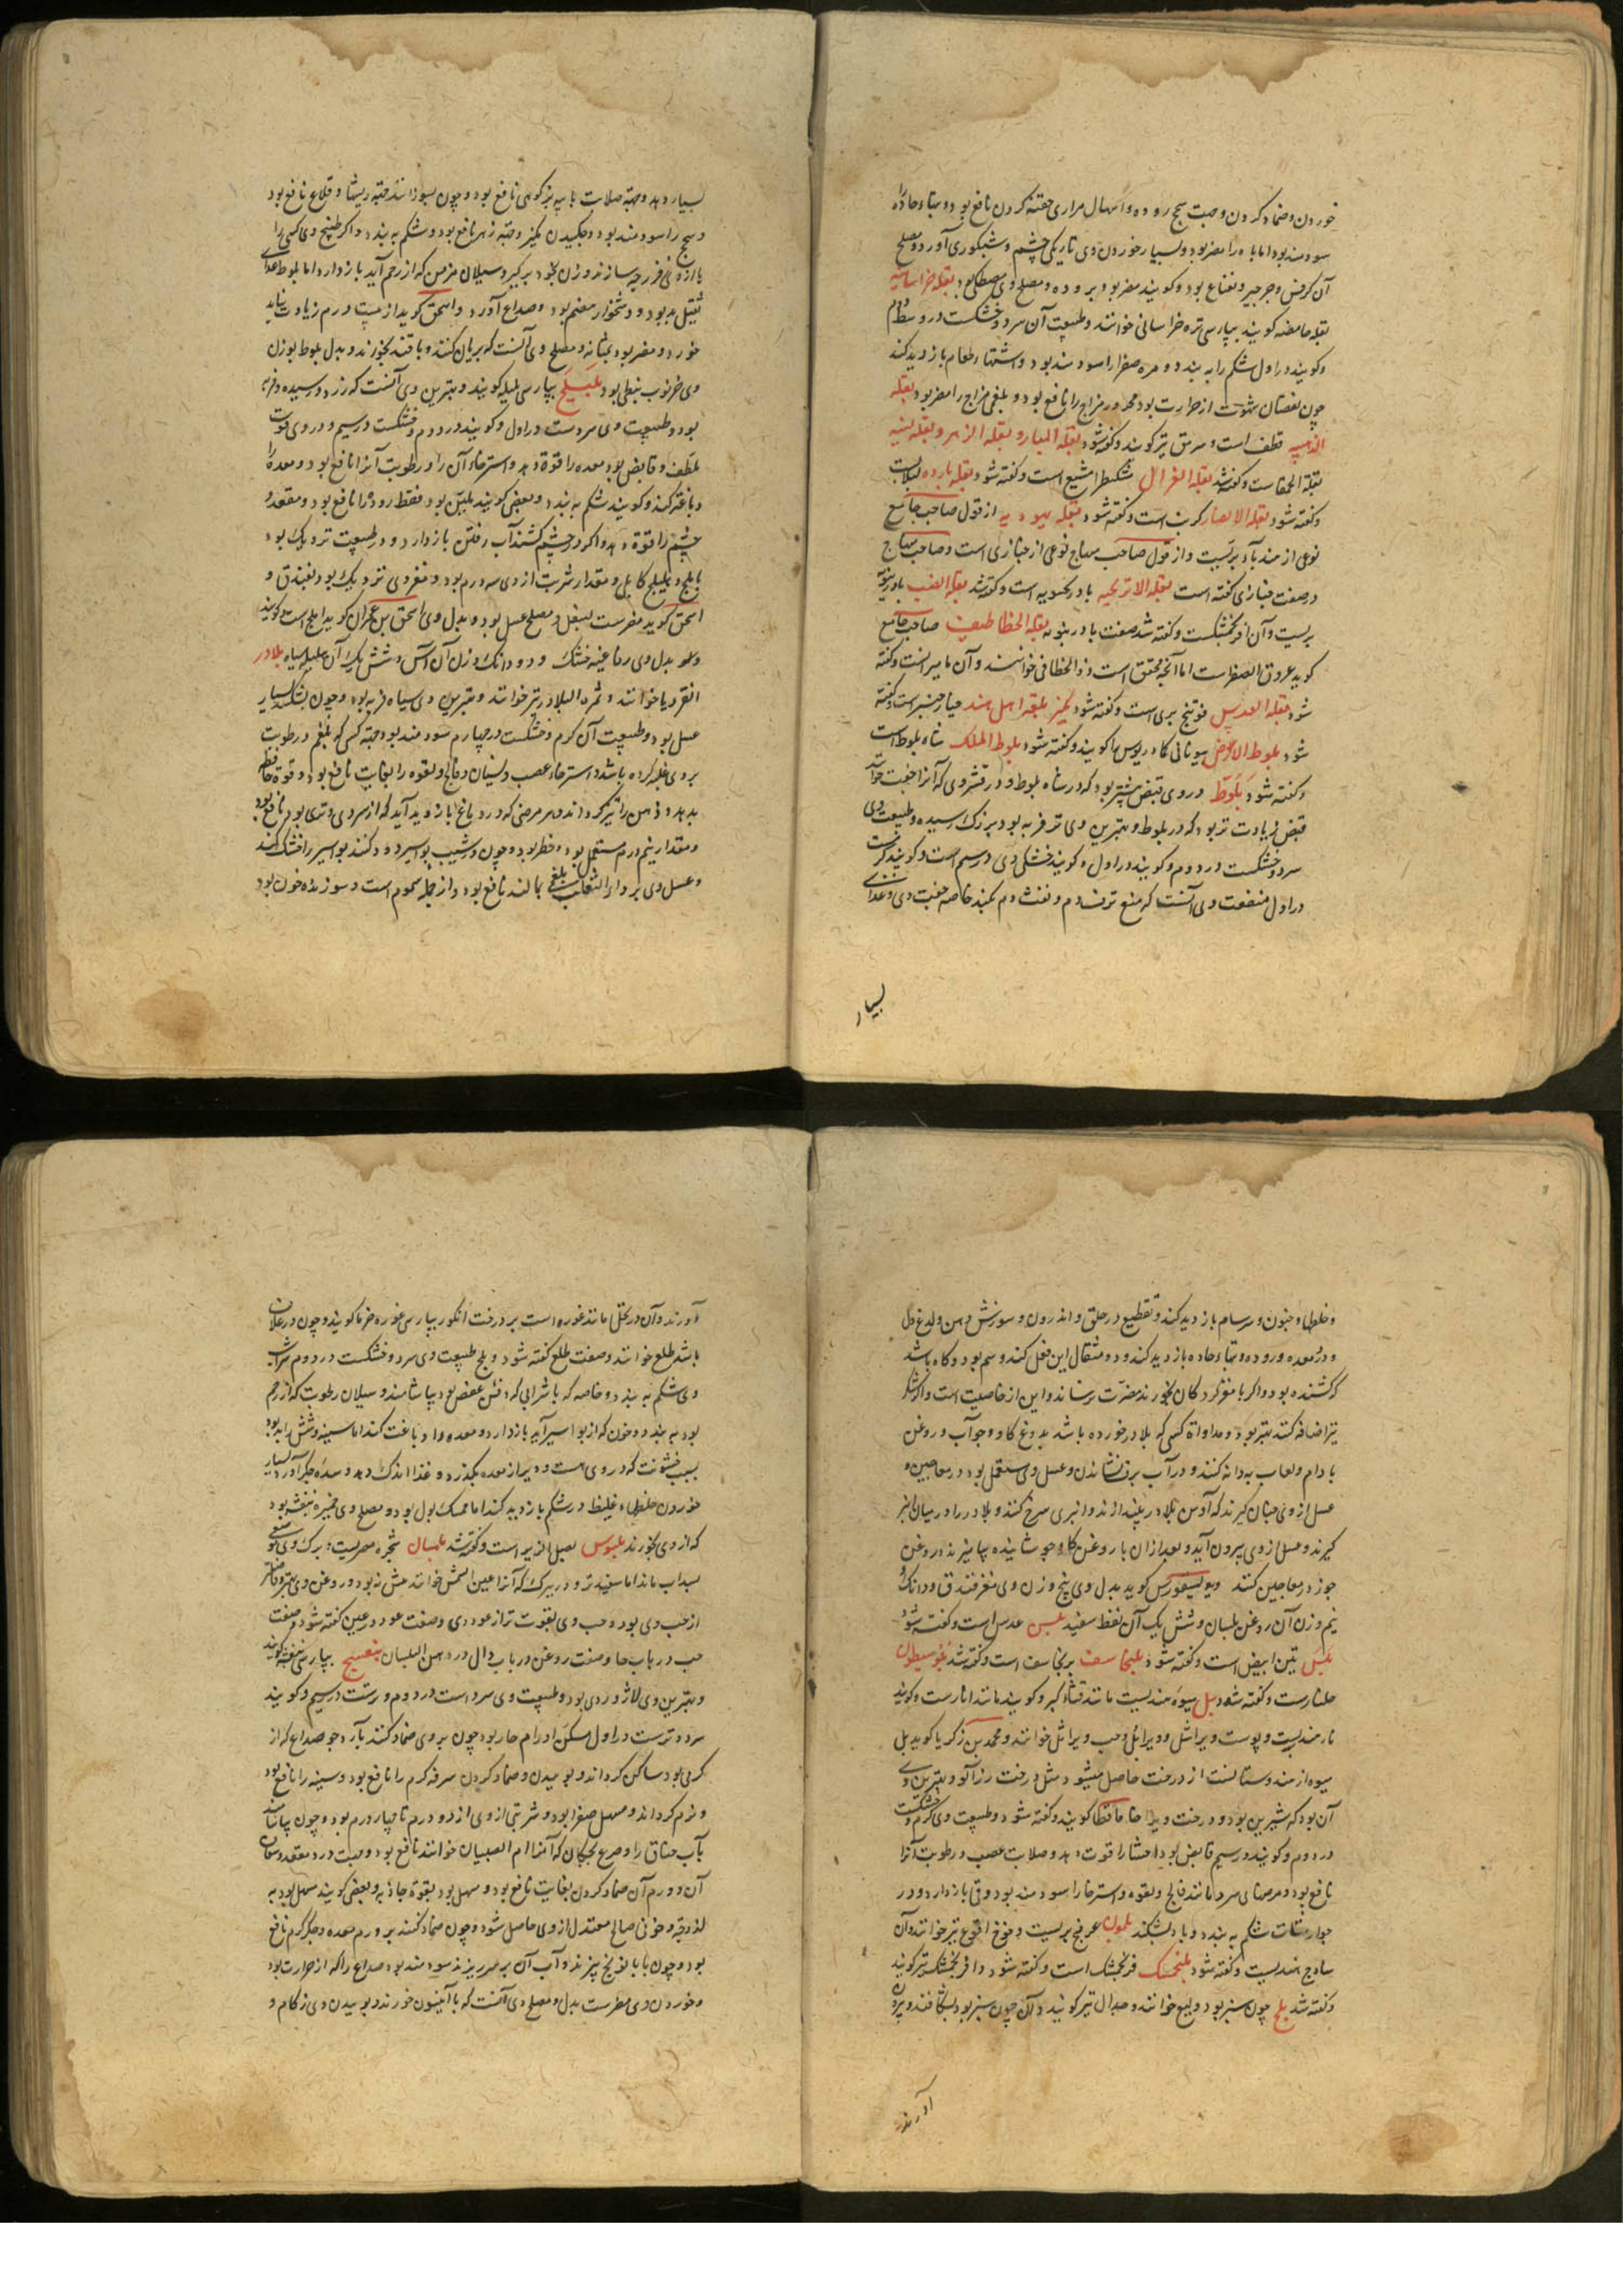 خوردن و ضماد کردن وصبت سحج روده و اسهال مراری حقنه کردن نافع بود و تبهاء حاده را
سودمند بود اما باه را مضر بود و بسیار خوردن وی تاریکی چشم و شبکوری آورد و مصلح
آن کرفس و جرجیر و نعناع بود و کویند مضر بود بروده و مصلح وی مصطکی بود بقله خراسانیه
بقله حامضه کویند بپارسی تره خراسانی خوانند و طبیعت آن سرد و خشکست در وسط دوم
و کویند در اول شکم را به بندد و مره صفرا را سودمند بود و اشتهاء طعام بازدید کند
چون نقصان شهوت از حرارت بود محرور مزاج را نافع بود و بلغمی مزاج را مضر بود بقله
الذهبیه قطف است و سرمق نیز کویند و کفته شود بقله المبارو بقله الزهر و بقله لینه
بقله الحمقاست و کفته شد بقله الغزال مشکطرامشیع است و کفته شود بقله بارده لبلابست
و کفته شود بقله الانصار کرنب است و کفته شود بقله یهودیه از قول صاحب جامع
نوعی از هندباء بریست و از قول صاحب منهاج نوعی از خبازی است و صاحب منهاج
در صفت خبازی کفته است بقله الاترجیه بادرنجبویه است و کفته شد بقله الضب بادرنبویه
بریست و آن افرنجمشکست و کفته شد صفت بادرنبویه بقله الخطاطیف صاحب جامع
کوید عروق الصفر است اما آنچه محقق است ذو الخطافی خوانند و آن مامیرانست و کفته
شود بقله العدس فوتنج بری است و کفته شود کمیز بلغة اهل هند خیار چنبر است و کفته
شود بلوط الارض یونانی کمادریوس را کویند و کفته شود بلوط الملک شاه بلوط است
و کفته شود بلوط در وی قبض بیشتر بود که در شاه بلوط و در قشر وی که آنرا جفت خوانند
قبض زیادت تر بود که در بلوط و بهترین وی تر فربه بود بزرک رسیده و طبیعت وی
سرد و خشکست در دوم و کویند در اول و کویند خشکی وی در سیم است و کویند کرمست
در اول منفعت وی آنست که منع نزف دم و نفث دم بکند خاصه جفت وی و غذای
بسیار
بسیار دهد و جهة صلابت با پیه بز کوهی نافع بود و چون بسوزانند جهة ریشها و قلاع نافع بود
و سحج را سودمند بود و چکیدن کمیز و جهة زهر نافع بود و شکم به بندد و اکر طبیخ وی کسی را
یا از وی فرزجه سازند و زن بخود برکیرد سیلان مزمن که از رحم آید بازدارد اما بلوط غذای
ثقیل بد بود و دشخوار هضم بود و صداع آورد و اسحق کوید از بیست درم زیادت نباید
خورد و مضر بود بمثانه و مصلح وی آنست که بریان کنند و با قند بخورند و بدل بلوط بوزن
وی خرنوب نبطی بود بلیلج بپارسی بلیله کویند و بهترین وی آنست که زرد و رسیده و فربه
بود و طبیعت وی سردست در اول و کویند در دوم و خشکست در سیم و در وی قوت
ملطف و قابض بود معده را قوة دهد و استرخاء آن را و رطوبت آنرا نافع بود و معده را
دباغت کند و کویند شکم به بندد و بعضی کویند ملین بود فقط روده را نافع بود و مقعد و
چشم را قوة دهد و اکر در چشم کشند آب رفتن بازدارد و در طبیعت نزدیک بود
باملج و هلیلج کابلی و مقدار شربت از وی سه درم بود و مغز وی نزدیک بود بفندق و
اسحق کوید مضرست بسفل و مصلح عسل بود و بدل وی اسحق بن عمران کوید املج است و کویند
وهو بدل وی رما عینه خشک و دو دانک وزن آن آس و شش یک آن هلیله سیاه بلادر
انقردیا خوانند و ثمرة البلادر نیز خوانند و بهترین وی سیاه فربه بود و چون بشکنند بسیار
عسل بود و طبیعت آن کرم و خشکست در چهارم سودمند بود جهة کسی که بلغم و رطوبت
بر وی غلبه کرده باشد و استرخاء عصب و نسیان و فالج و لقوه را بغایت نافع بود و قوة حافظه
بدهد و ذهن را تیز کرداند و هر مرضی که در دماغ بازدید آید که از سردی و تری بود نافع بود
و مقدار نیم درم مستعمل بود و خطر بود و چون در شیب بواسیر دود کنند بواسیر را خشک کند
و عسل وی بر داء الثعلب بلغمی بمالند نافع بود و از جمله سموم است و سوزنده خون بود
و خلط را و جنون و سرسام بازدید کند و تقطیع در حلق و اندرون و سوزش دهن و لدغ دل
و درد معده و روده و تبهاء حاده بازدید کند و دو مثقال این فعل کند و سم بود و کاه باشد
که کشنده بود و اکر با مغز کردکان بخورند مضرت نرساند و این از خاصیت است و اکر شکر
نیز اضافه کنند بهتر بود و مداواة کسی که بلادر خورده باشد بدوغ کاو و جوآب و روغن
بادام و لعاب به دانه کنند و در آب برف نشاندن و عسل وی مستعمل بود در معاجین و
عسل از وی چنان کیرند که آوس بلادر بیندازند و انبری سرخ کنند و بلادر را در میان انبر
کیرند و عسل از وی بیرون آید و بعد از آن با روغن کاو جوشانیده بیامیزند و روغن
جوز در معاجین کنند و دیسقوریدس کوید بدل وی پنج وزن وی مغز فندق و دانک و
نیم وزن آن روغن بلسان و شش یک آن نفط سفید بلس عدس است و کفته شود
بلس تین ابیض است و کفته شود بلنجاسف برنجاسف است و کفته شد بلوسطیون
جلنارست و کفته شود بل میوه هندیست مانند قثاء کبر و کویند مانند انارست و کویند
نار هندیست و پوست ویرا شل و ویرا بل و حب ویرا شل خوانند و محمد بن زکریا کوید بل
میوه از هندوستانست از درخت حاصل میشود مثل درخت زرآلو و بهترین وی
آن بود که شیرین بود و درخت ویرا حامافطا کویند و کفته شود و طبیعت وی کرم و خشکست
در دوم و کویند در سیم قابض بود احشا را قوت دهد و صلابت عصب و رطوبت آنرا
نافع بود و مرضهای سرد مانند فالج و لقوه و استرخا را سودمند بود و قی بازدارد و در
جوارشنات شکم به بندد و باد بشکند بلوط عرفج بریست و فرفخ اقوع نیز خوانند و آن
ساذج هندیست و کفته شود بلنجمشک فرنجمشک است و کفته شود و افرنجمشک نیز کویند
و کفته شد بلح چون سبز بود و بلیع خوانند و جدال نیز کویند و آن چون سبز بود بشکافند و بیرون
آورند
آورند و آن در نخل مانند غوره است بر درخت انکور بپارسی غوره خرما کویند و چون در غلاف
باشد طلع خوانند و صفت طلع کفته شود و بلح طبیعت وی سرد و خشکست در دوم شراب
وی شکم به بندد و خاصه که با شرابی که اندکی عفص بود بیاشامند و سیلان رطوبت که از رحم
بود به بندد و خون که از بواسیر آید بازدارد و معده را دباغت کند اما سینه و شش را بد بود
بسبب خشونت که در وی هست و دیر از معده بکذرد و غذا اندک دهد و سده جکر آورد و بسیار
خوردن خلطهاء غلیظ در شکم بازدید کند اما ممسک بول بود و مصلح وی خمیره بنفشه بود
که از وی بخورند بلبوس بصل الزیر است و کفته شد بلسان شجره مصریست برک وی
بسداب ماند اما سفیدتر و در بیرک که آنرا عین الشمس خوانند مثل ز بود و روغن وی بهتر و فاضلتر
از حب وی بود و حب وی بقوت تر از عود وی و صفت عود در عین کفته شود و صفت
حب در باب حا و صفت روغن در باب دال در دهن البلسان بنفسج بپارسی بنفشه کویند
و بهترین وی لاژوردی بود و طبیعت وی سرد است در دوم و ترست در سیم و کویند
سرد و ترست در اول مسکن اورام حار بود چون بر وی ضماد کنند بآرد جو صداع که از
کرمی بود ساکن کرداند و بوییدن و ضماد کردن سرفه کرم را نافع بود و سینه را نافع بود
و نرم کرداند و مسهل صفرا بود و شربتی از وی از دو درم تا چهار درم بود و چون بیاشامند
بآب خناق را و صرع بچکان که آنرا ام الصبیان خوانند نافع بود و جهت درد مقعد و شقاق
آن و ورم آن ضماد کردن بغایت نافع بود و مسهل بود بقوة جاذبه و بعضی کویند مسهل بود به
لذوقیه و خونی صالح معتدل از وی حاصل شود و چون ضماد کنند بر ورم معده و جکر کرم نافع
بود و چون با بابونج بپزند و آب آن بر سر ریزند سودمند بود صداع را که از حرارت بود
و خوردن وی مضرست بدل و مصلح وی آنست که با انیسون خورند و بوییدن وی زکام و